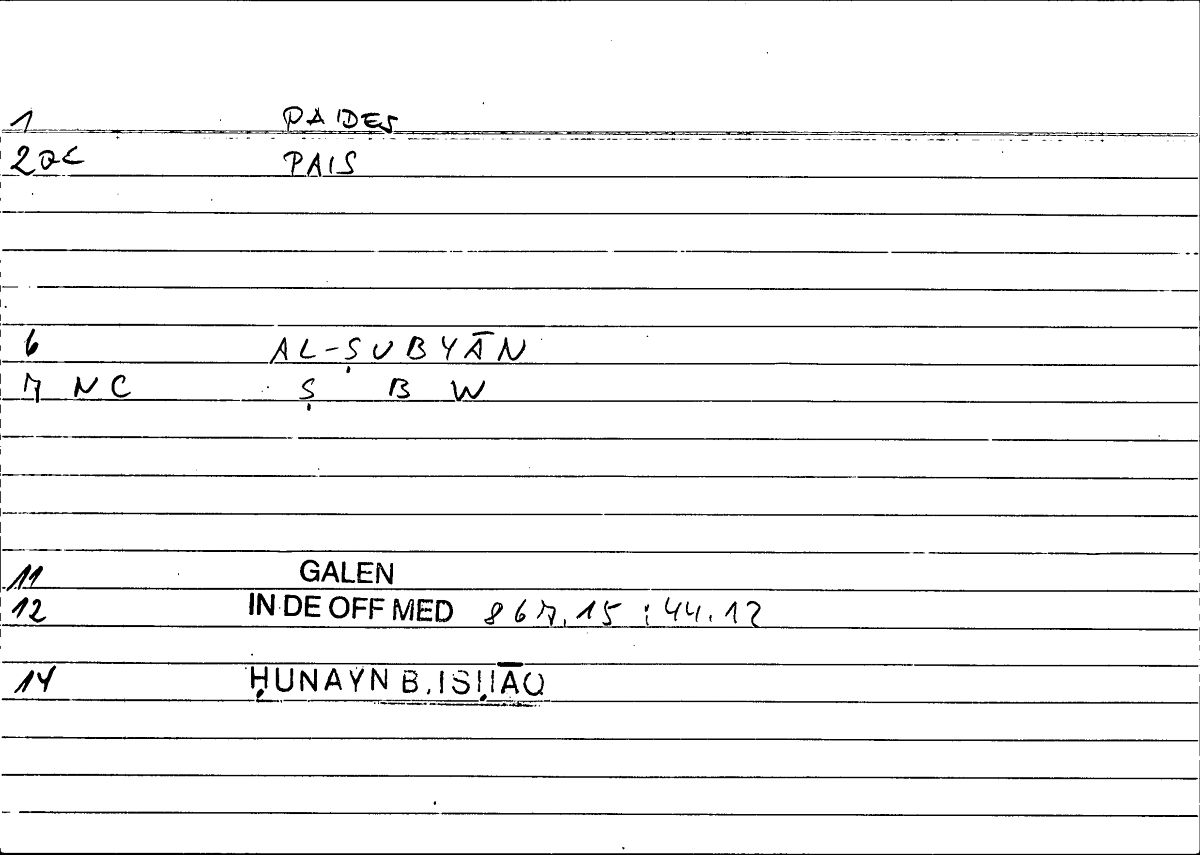 1 PAIDES
2 PAIS
6 AL-ṢUBYĀN
7 NC Ṣ B W
11 GALEN
12 IN DE OFF MED 867.15 : 44.12
14 ḤUNAYN B. ISḤĀQ